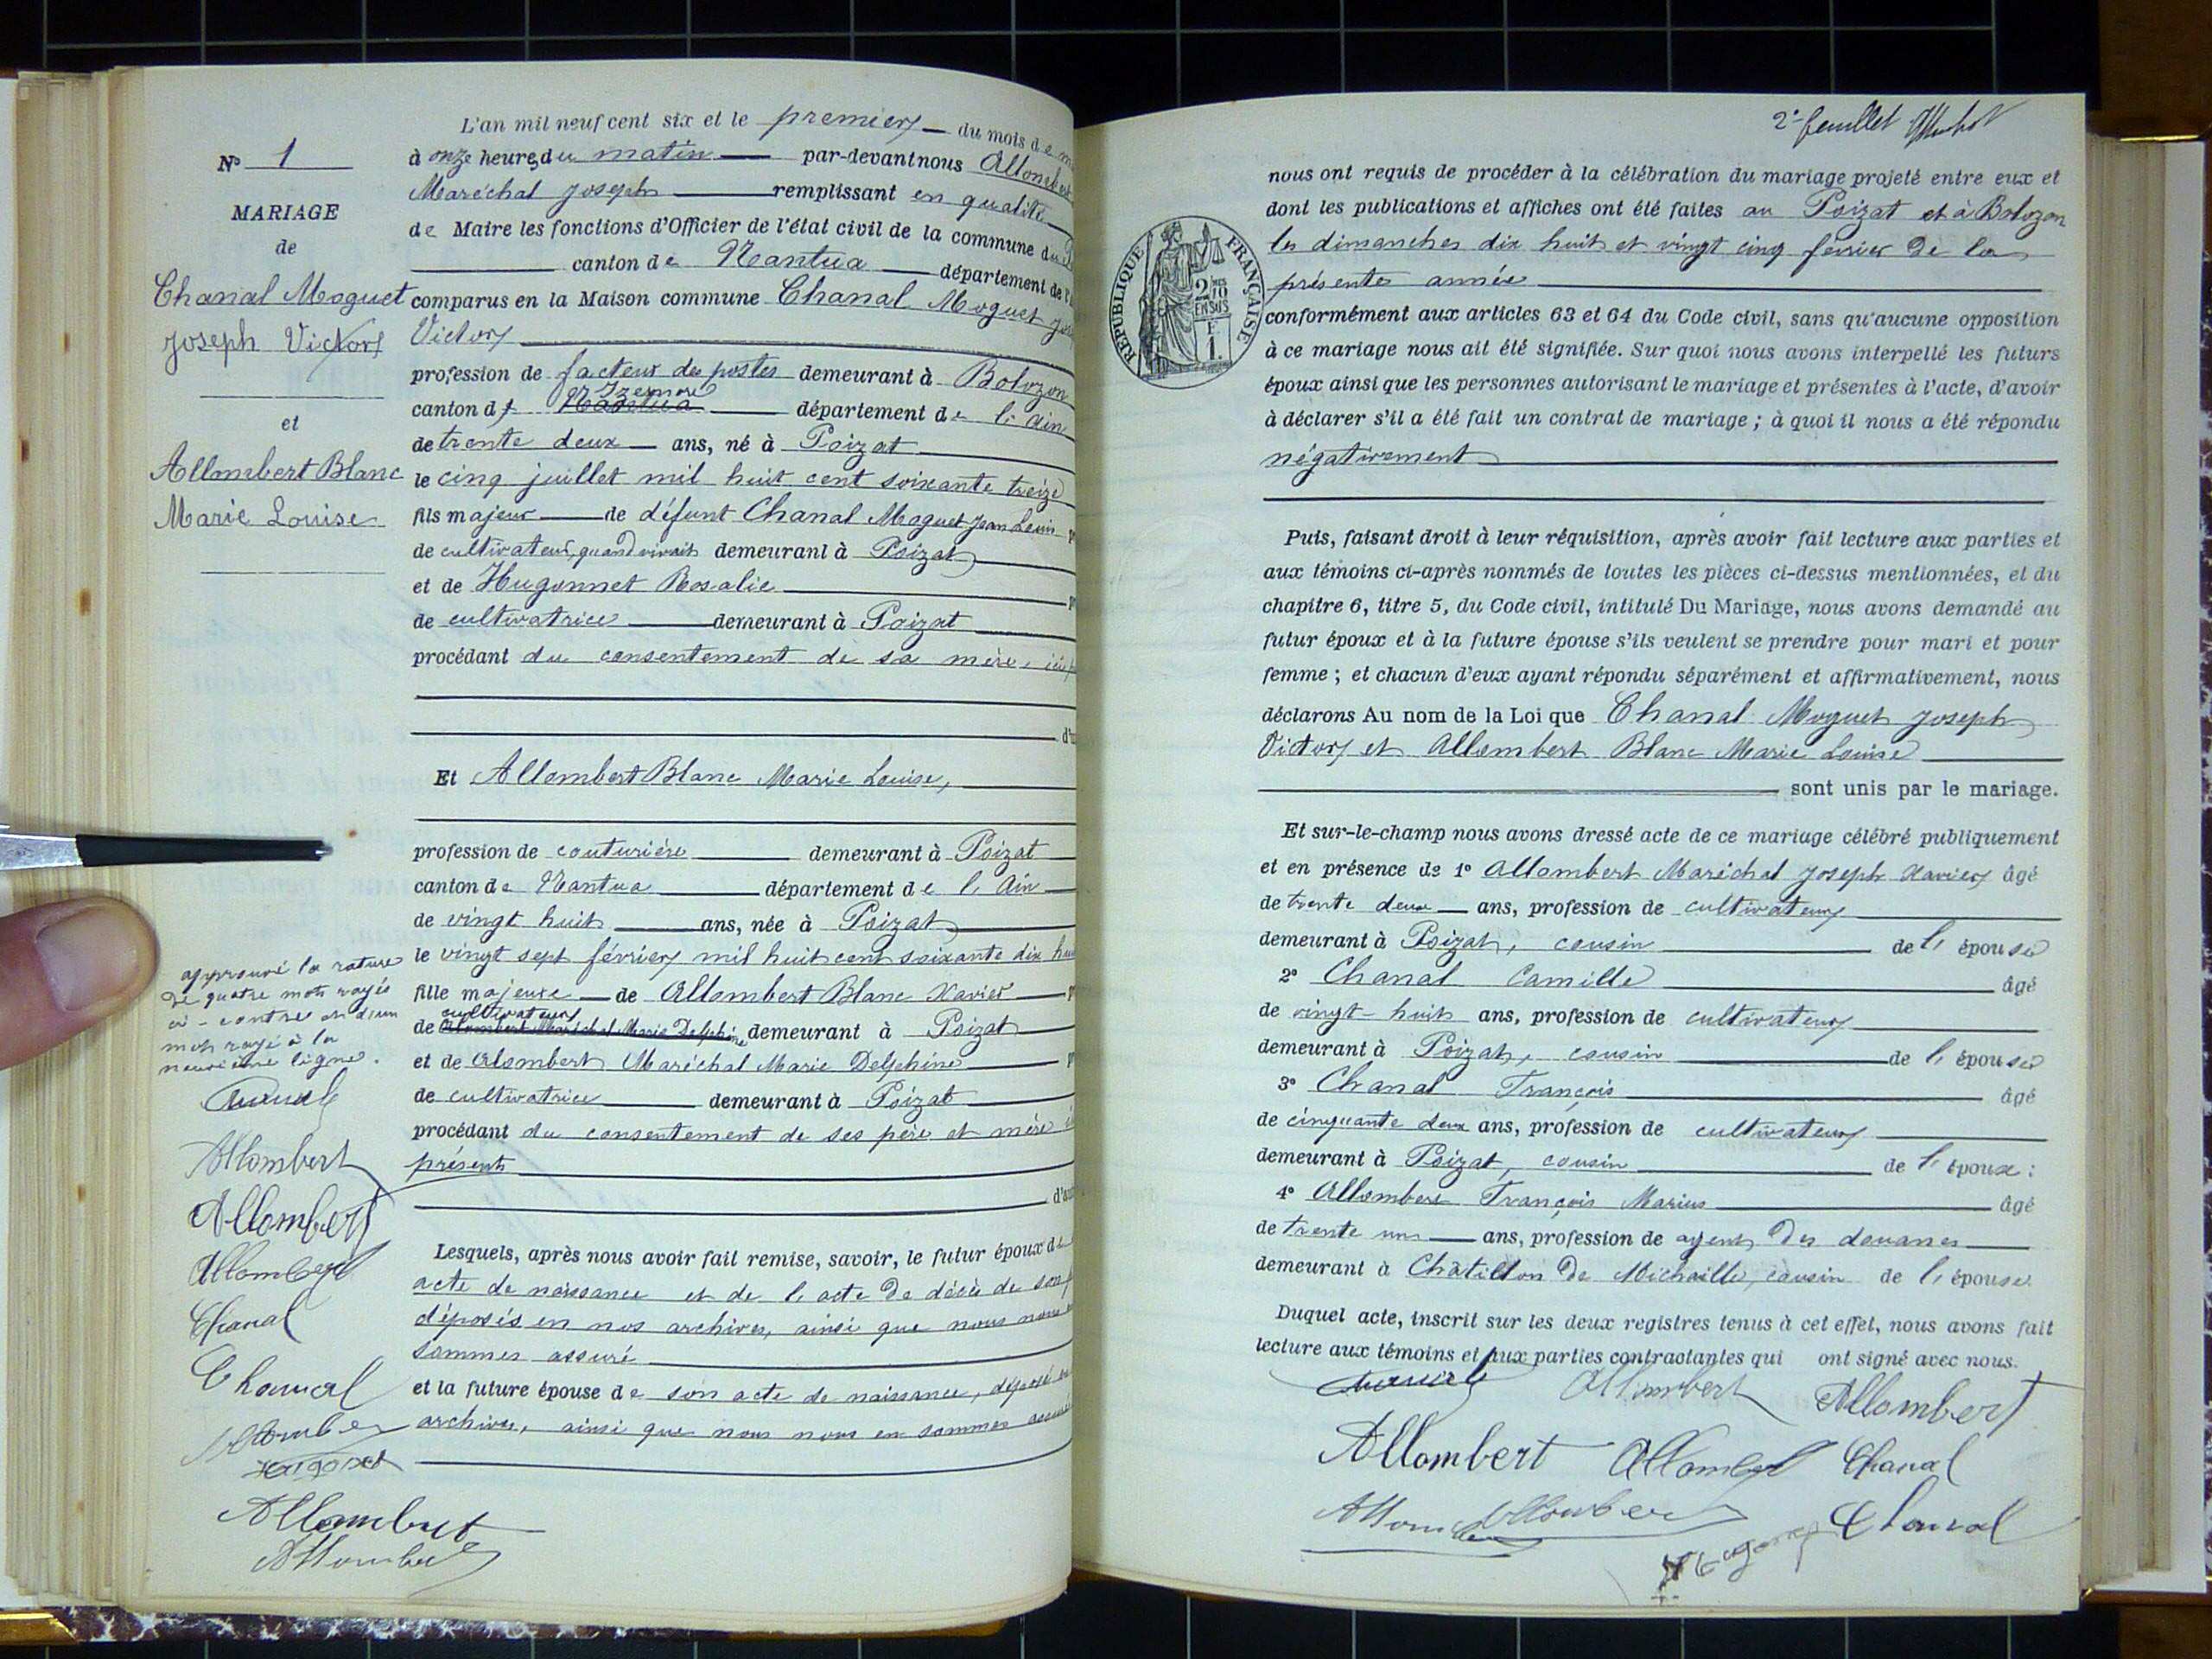 N° 1
MARIAGE
de
Chanal Moguet
Joseph Victor
et
Allombert Blanc
Marie Louise
approuvé la rature
de quatre mots rayés
ci-contre et d'un
mot rayé à la
neuvième ligne.
Allombert
Allombert
Allombert
Chanal
Chanal
Allombert
Hugonnet
Allombert
Allombert
L'an mil neuf cent six et le premier du mois de
à onze heures du matin par-devant nous Allombert
Maréchal Joseph remplissant en qualité
de Maire les fonctions d'Officier de l'état civil de la commune du
canton de Nantua département de
comparus en la Maison commune Chanal Moguet
Victor
profession de facteur des postes demeurant à Bolozon
canton d' Izernore Nantua département de l'Ain
de trente deux ans, né à Poizat
le cinq juillet mil huit cent soixante treize
fils majeur de défunt Chanal Moguet Jean Louis
de cultivateur, quand vivait demeurant à Poizat
et de Hugonnet Rosalie
de cultivatrice demeurant à Poizat
procédant du consentement de sa mère,
Et Allombert Blanc Marie Louise,
profession de couturière demeurant à Poizat
canton de Nantua département de l'Ain
de vingt huit ans, née à Poizat
le vingt sept février mil huit cent soixante dix
fille majeure de Allombert Blanc Xavier
cultivateur
de Alombert Maréchal Marie Delphine demeurant à Poizat
et de Alombert Maréchal Marie Delphine
de cultivatrice demeurant à Poizat
procédant du consentement de ses père et mère
présents
Lesquels, après nous avoir fait remise, savoir, le futur époux de
acte de naissance et de l'acte de décès de son
déposés en nos archives, ainsi que nous nous
sommes assuré
et la future épouse de son acte de naissance, déposé
archives, ainsi que nous nous en sommes assuré
2e feuillet
RÉPUBLIQUE FRANÇAISE
2/10
EN SUS
1.
nous ont requis de procéder à la célébration du mariage projeté entre eux et
dont les publications et affiches ont été faites au Poizat et à Bolozon
les dimanches dix huit et vingt cinq février de la
présente année
conformément aux articles 63 et 64 du Code civil, sans qu'aucune opposition
à ce mariage nous ait été signifiée. Sur quoi nous avons interpellé les futurs
époux ainsi que les personnes autorisant le mariage et présentes à l'acte, d'avoir
à déclarer s'il a été fait un contrat de mariage ; à quoi il nous a été répondu
négativement
Puis, faisant droit à leur réquisition, après avoir fait lecture aux parties et
aux témoins ci-après nommés de toutes les pièces ci-dessus mentionnées, et du
chapitre 6, titre 5, du Code civil, intitulé Du Mariage, nous avons demandé au
futur époux et à la future épouse s'ils veulent se prendre pour mari et pour
femme ; et chacun d'eux ayant répondu séparément et affirmativement, nous
déclarons Au nom de la Loi que Chanal Moguet Joseph
Victor et Allombert Blanc Marie Louise
sont unis par le mariage.
Et sur-le-champ nous avons dressé acte de ce mariage célébré publiquement
et en présence de 1° Allombert Maréchal Joseph Xavier âgé
de trente deux ans, profession de cultivateur
demeurant à Poizat, cousin de l'épouse
2° Chanal Camille âgé
de vingt-huit ans, profession de cultivateur
demeurant à Poizat, cousin de l'épouse
3° Chanal François âgé
de cinquante deux ans, profession de cultivateur
demeurant à Poizat, cousin de l'époux :
4° Allombert François Marius âgé
de trente un ans, profession de agent des douanes
demeurant à Châtillon de Michaille, cousin de l'épouse
Duquel acte, inscrit sur les deux registres tenus à cet effet, nous avons fait
lecture aux témoins et aux parties contractantes qui ont signé avec nous.
Allombert Allombert
Allombert Allombert Chanal
Allombert Allombert Chanal
Hugonnet